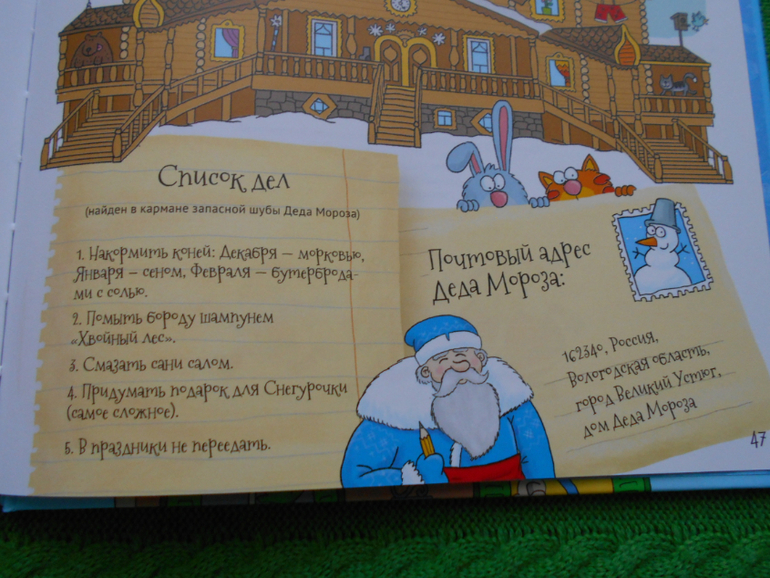 Список дел
(найден в кармане запасной шубы Деда Мороза)
1. Накормить коней: Декабря – морковью,
Января – сеном, Февраля – бутерброда-
ми с солью.
2. Помыть бороду шампунем
«Хвойный лес».
3. Смазать сани салом.
4. Придумать подарок для Снегурочки
(самое сложное).
5. В праздники не переедать.
Почтовый адрес
Деда Мороза:
162340, Россия,
Вологодская область,
город Великий Устюг,
дом Деда Мороза
47